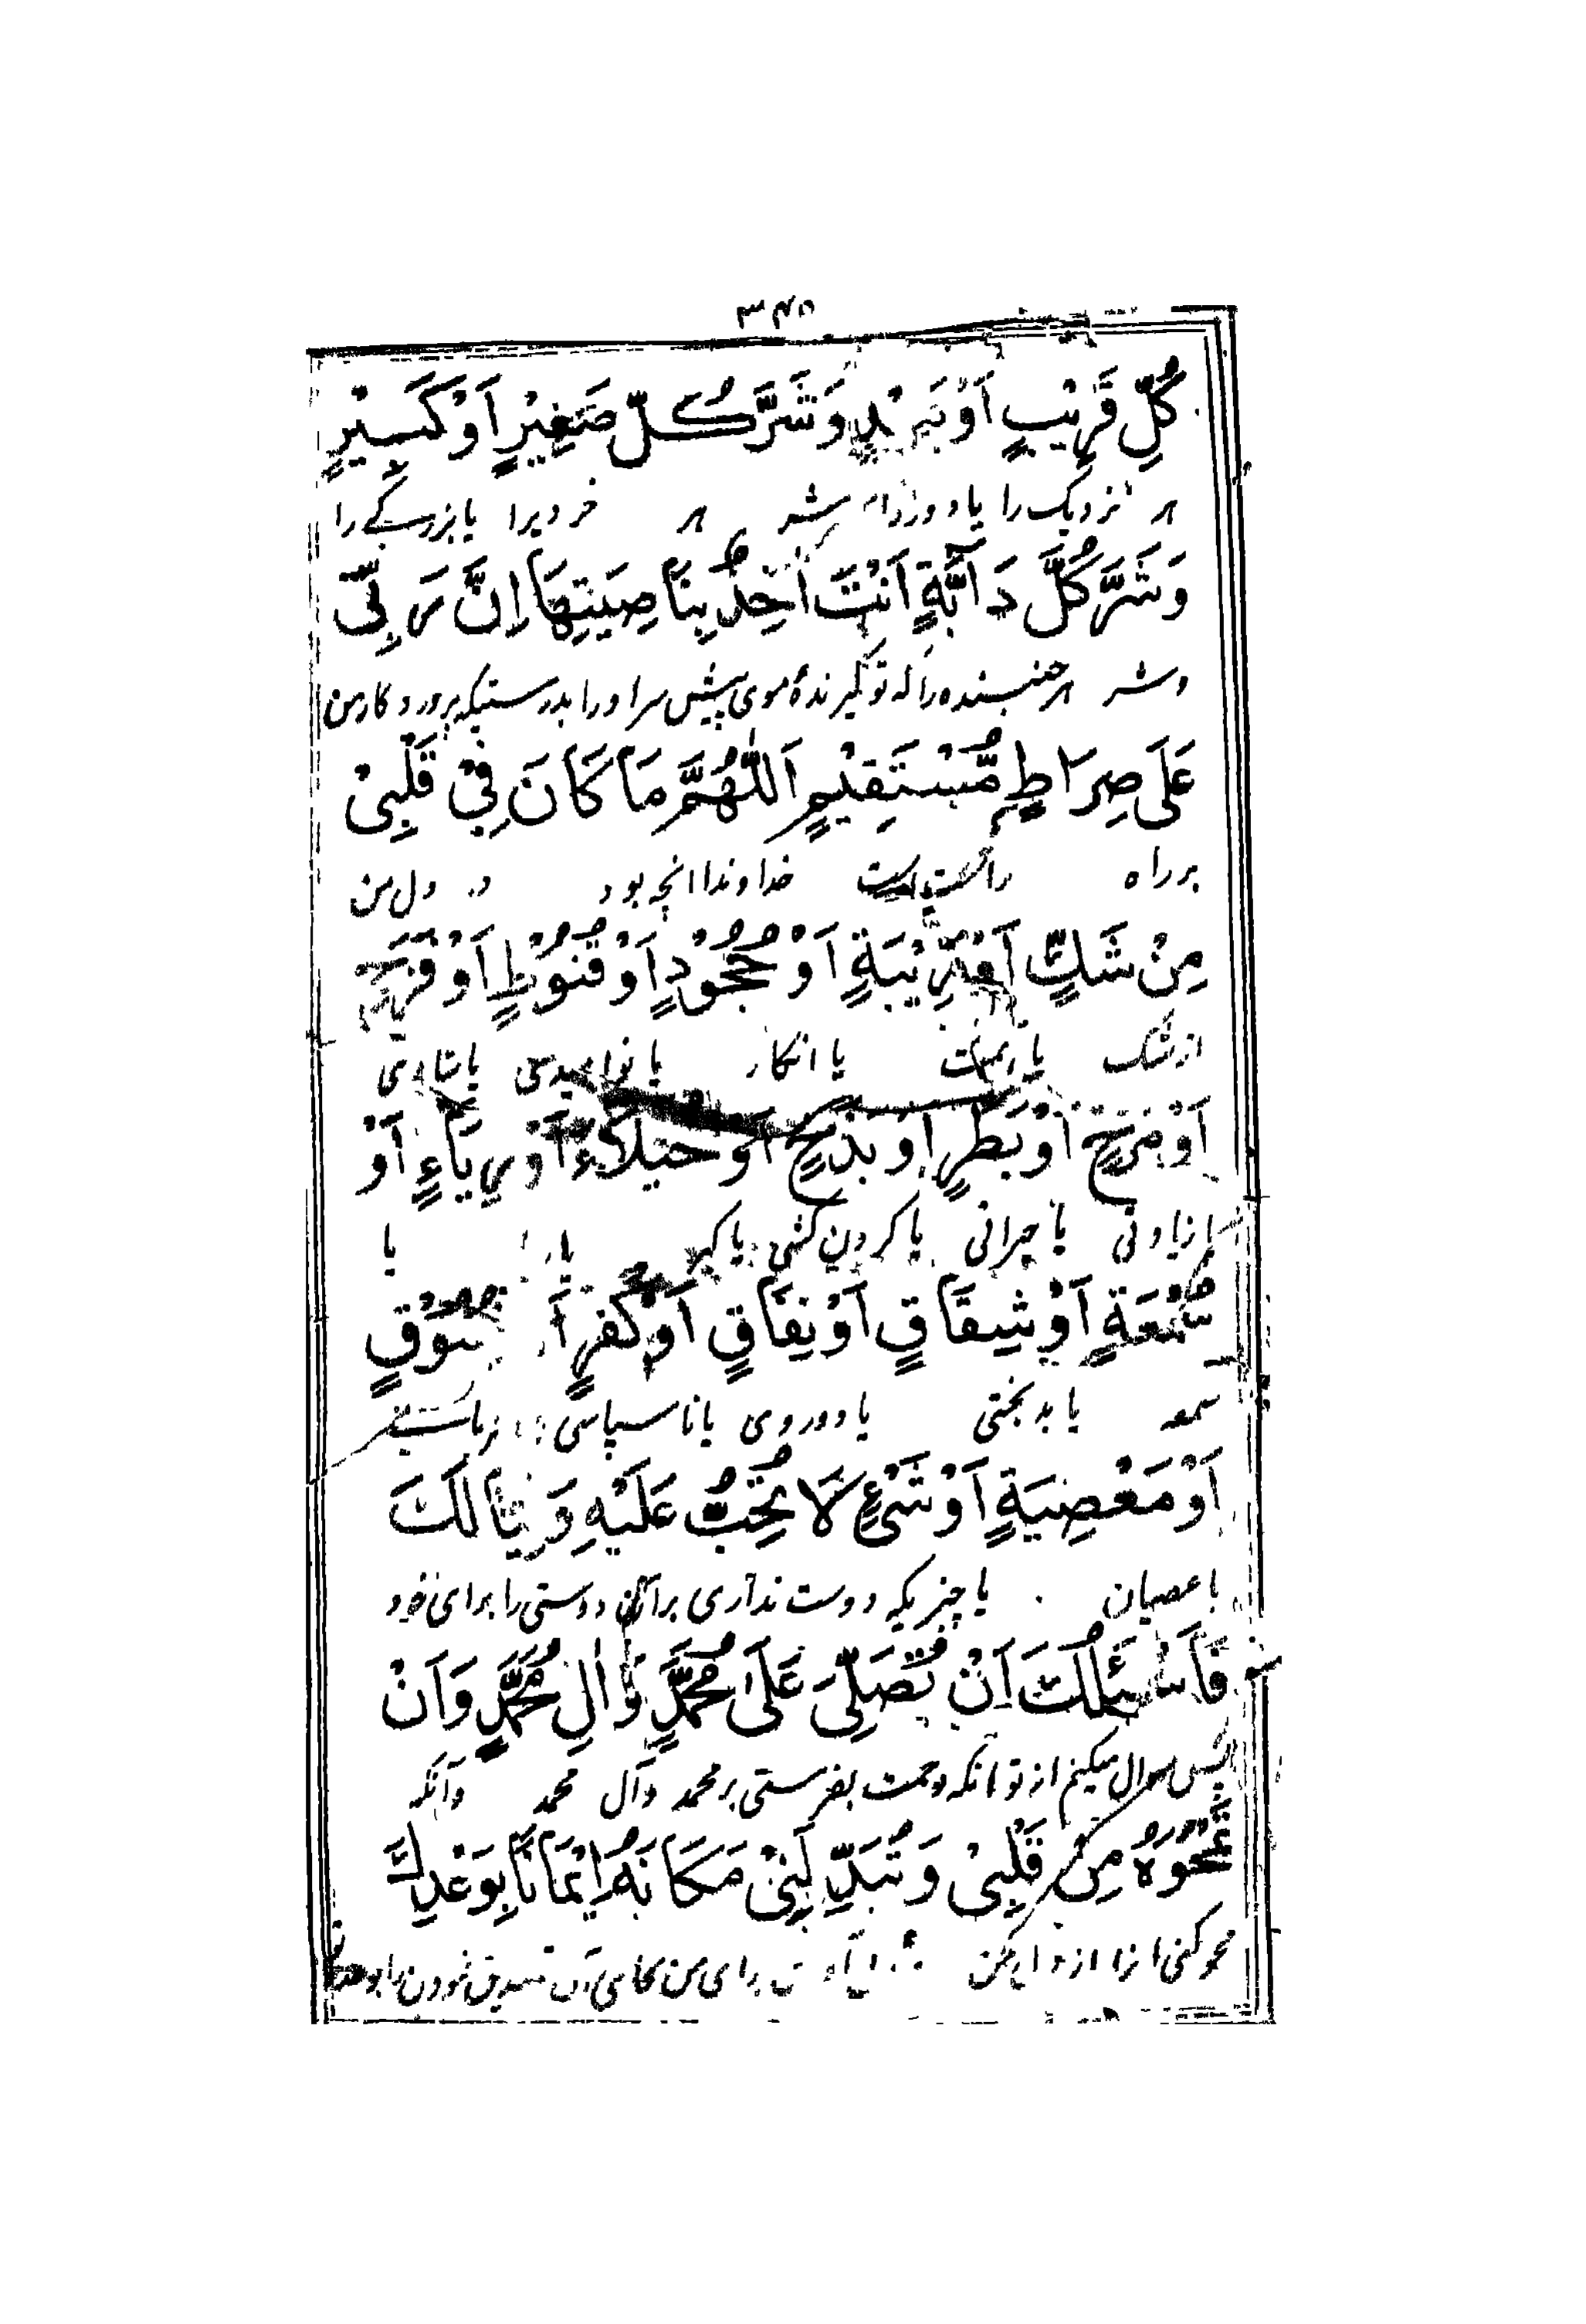 ۳۴۵
كُلِّ قَرِيْبٍ اَوْ بَعِيْدٍ وَشَرَّ كُلِّ صَغِيْرٍ اَوْ كَبِيْرٍ
هر نزدیک را یا دور را و شر هر خردیرا یا بزرگے را
وَشَرَّ كُلِّ دَآبَّةٍ اَنْتَ اٰخِذٌ بِنَاصِيَتِهَا اِنَّ رَبِّىْ
و شر هر جنبنده را که تو گیرندۀ موی پیش سر او را بدرستیکه پروردگار من
عَلَى صِرَاطٍ مُّسْتَقِيْمٍ اَللّٰهُمَّ مَا كَانَ فِىْ قَلْبِىْ
بر راه راست است خداوندا انچه بود در دل من
مِنْ شَكٍّ اَوْ رِيْبَةٍ اَوْ جُحُوْدٍ اَوْ قُنُوْطٍ اَوْ فَرَحٍ
از شک یا یا انکار یا نوامیدی یا شادی
اَوْ مَرَحٍ اَوْ بَطَرٍ اَوْ بَذَخٍ اَوْ خُيَلَاءَ اَوْ رِيَاءٍ اَوْ
یا زیادتی یا حیرانی یا گردن کشی یا کبر یا
سُمْعَةٍ اَوْ شِقَاقٍ اَوْ نِفَاقٍ اَوْ كُفْرٍ اَوْ فُسُوْقٍ
سمعه یا بدبختی یا دوروی یا ناسپاسی
اَوْ مَعْصِيَةٍ اَوْ شَىْءٍ لَا تُحِبُّ عَلَيْهِ وَلِيًّا لَكَ
یا عصیان یا چیزیکه دوست نداری بران دوستی را برای خود
فَاَسْئَلُكَ اَنْ تُصَلِّىَ عَلَى مُحَمَّدٍ وَاٰلِ مُحَمَّدٍ وَاَنْ
پس سوال میکنم از تو انکه رحمت بفرستی بر محمد و آل محمد و آنکه
تَمْحُوَهُ مِنْ قَلْبِىْ وَتُبَدِّلَنِىْ مَكَانَهُ اِيْمَانًا بِوَعْدِكَ
محو کنی انرا از دل من برای من بجای آن تصدیق نمودن